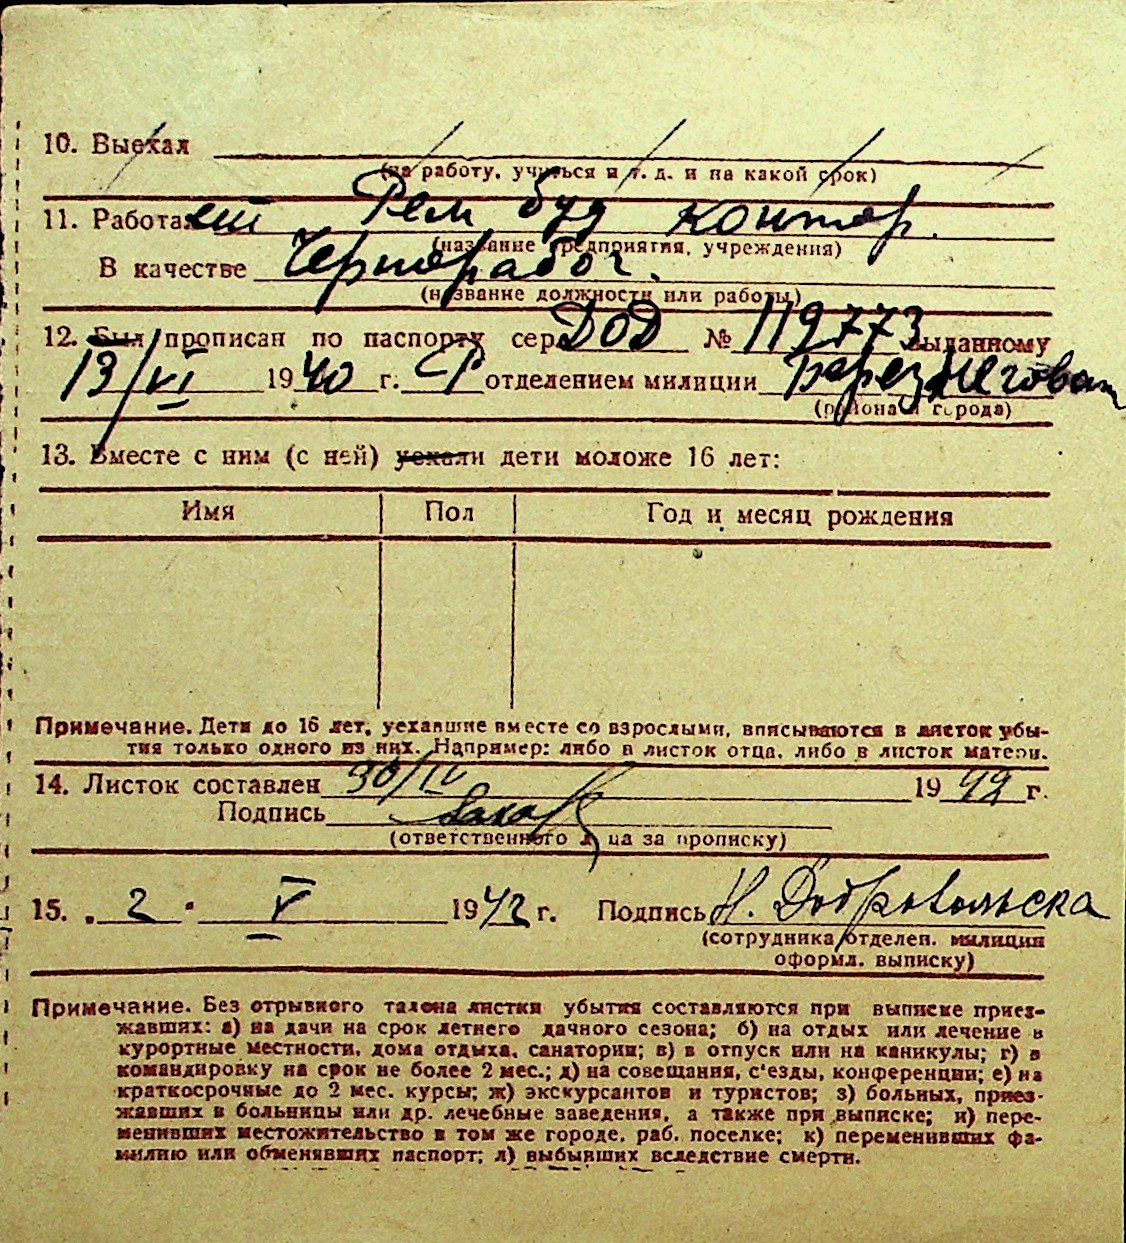 10. Выехал
(на работу, учиться и т. д. и на какой срок)
11. Работает Рем буд контор.
(название предприятия, учреждения)
В качестве Чернорабоч.
(название должности или работы)
12. Был прописан по паспорту сер. ДОД № 119773 выданному
13/VI 1940 г. отделением милиции
(района и города)
13. Вместе с ним (с ней) уехали дети моложе 16 лет:
Имя Пол Год и месяц рождения
Примечание. Дети до 16 лет, уехавшие вместе со взрослыми, вписываются в листок убы-
тия только одного из них. Например: либо в листок отца, либо в листок матери.
14. Листок составлен 30/IV 19 г.
Подпись
(ответственного лица за прописку)
15. „ 2 " V 1942 г. Подпись Н. Добровольска
(сотрудника отделен. милиции
оформл. выписку)
Примечание. Без отрывного талона листки убытия составляются при выписке приез-
жавших: а) на дачи на срок летнего дачного сезона; б) на отдых или лечение в
курортные местности, дома отдыха, санатории; в) в отпуск или на каникулы; г) в
командировку на срок не более 2 мес.; д) на совещания, с'езды, конференции; е) на
краткосрочные до 2 мес. курсы; ж) экскурсантов и туристов; з) больных, приез-
жавших в больницы или др. лечебные заведения, а также при выписке; и) пере-
менивших местожительство в том же городе, раб. поселке; к) переменивших фа-
милию или обменявших паспорт; л) выбывших вследствие смерти.